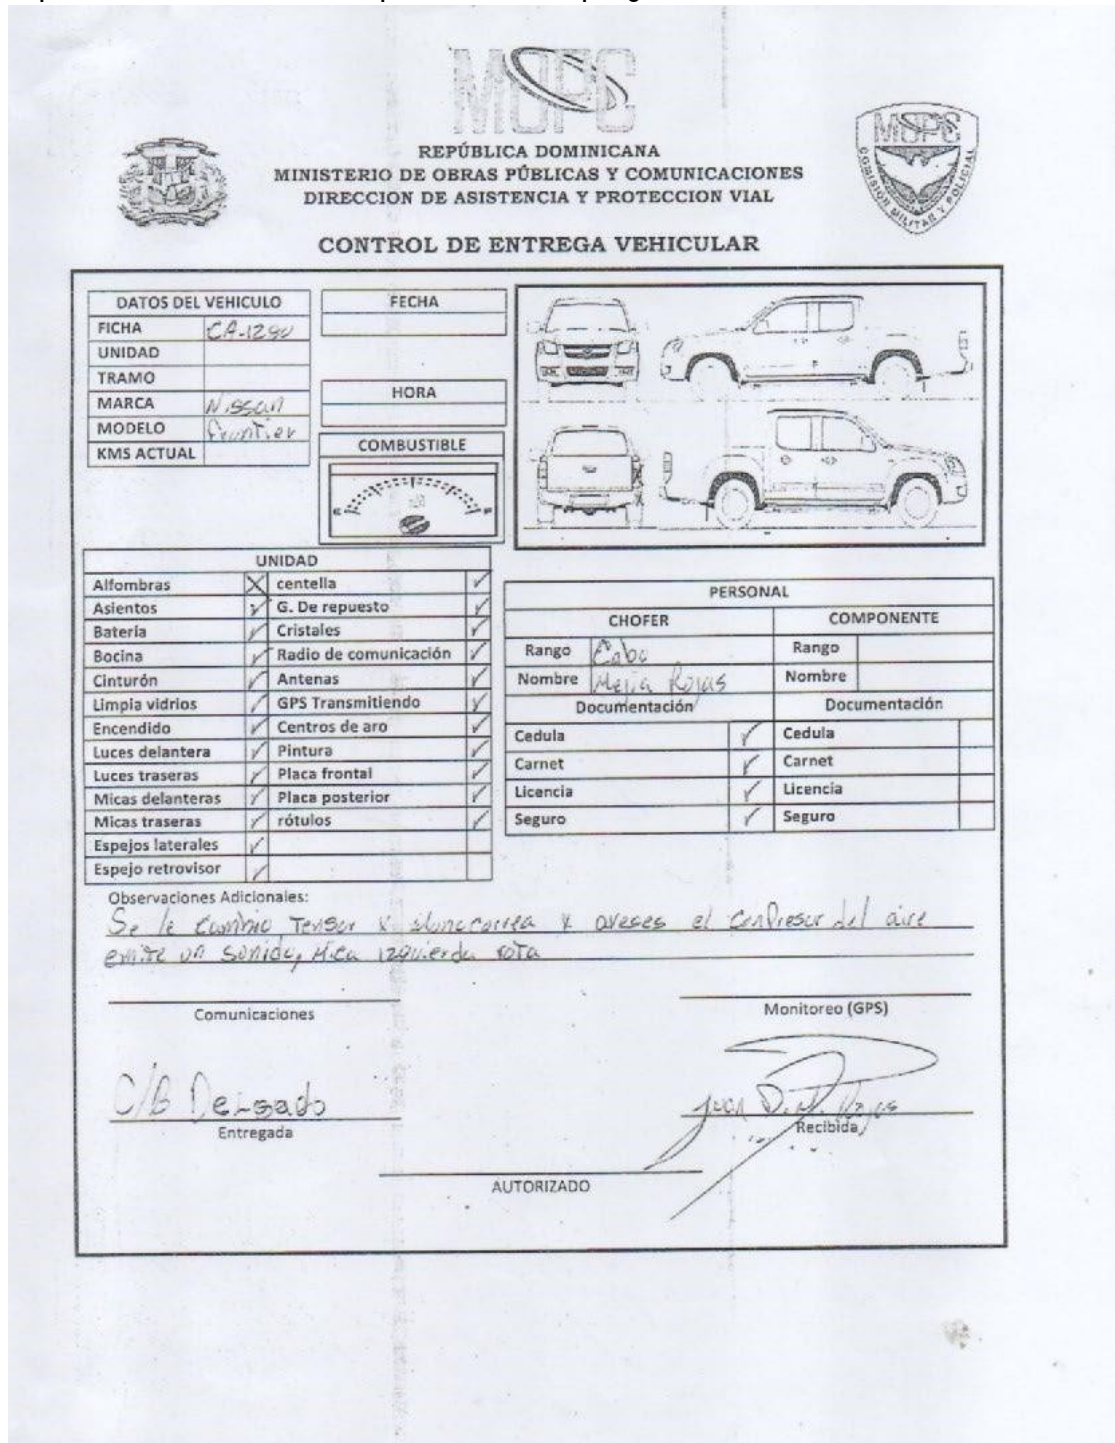 MOPC
MOPC
COMISION MILITAR Y POLICIAL
REPÚBLICA DOMINICANA
MINISTERIO DE OBRAS PÚBLICAS Y COMUNICACIONES
DIRECCION DE ASISTENCIA Y PROTECCION VIAL
CONTROL DE ENTREGA VEHICULAR
DATOS DEL VEHICULO
FICHA CA-1290
UNIDAD
TRAMO
MARCA Nissan
MODELO frontier
KMS ACTUAL
FECHA
HORA
COMBUSTIBLE
UNIDAD
Alfombras X centella ✓
Asientos ✓ G. De repuesto ✓
Batería ✓ Cristales ✓
Bocina ✓ Radio de comunicación ✓
Cinturón ✓ Antenas ✓
Limpia vidrios ✓ GPS Transmitiendo ✓
Encendido ✓ Centros de aro ✓
Luces delantera ✓ Pintura ✓
Luces traseras ✓ Placa frontal ✓
Micas delanteras ✓ Placa posterior ✓
Micas traseras ✓ rótulos ✓
Espejos laterales ✓
Espejo retrovisor ✓
PERSONAL
CHOFER COMPONENTE
Rango Cabo Rango
Nombre Mejia Rojas Nombre
Documentación Documentación
Cedula ✓ Cedula
Carnet ✓ Carnet
Licencia ✓ Licencia
Seguro ✓ Seguro
Observaciones Adicionales:
Se le cambio Tensor aveses el del aire
emite un sonido, Mica izquierda rota
Comunicaciones
Monitoreo (GPS)
C/B Delgado
Entregada
Juan D. M. Rojas
Recibida
AUTORIZADO